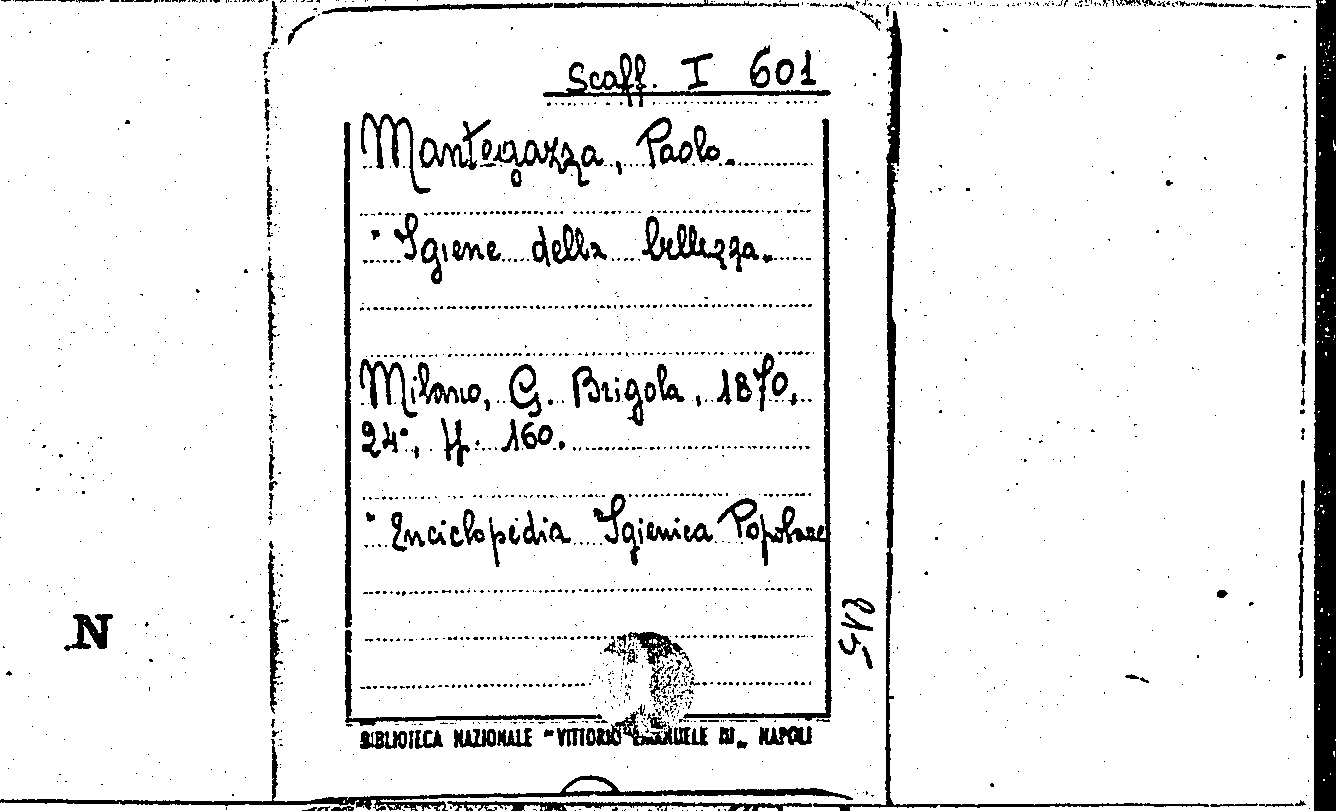 Scaff. I 601
Mantegazza, Paolo.
" Igiene della bellezza.
Milano, G. Brigola, 1870,
24°, pp. 160.
" Enciclopedia Igienica Popolare
N
BIBLIOTECA NAZIONALE "VITTORIO EMANUELE III„ NAPOLI